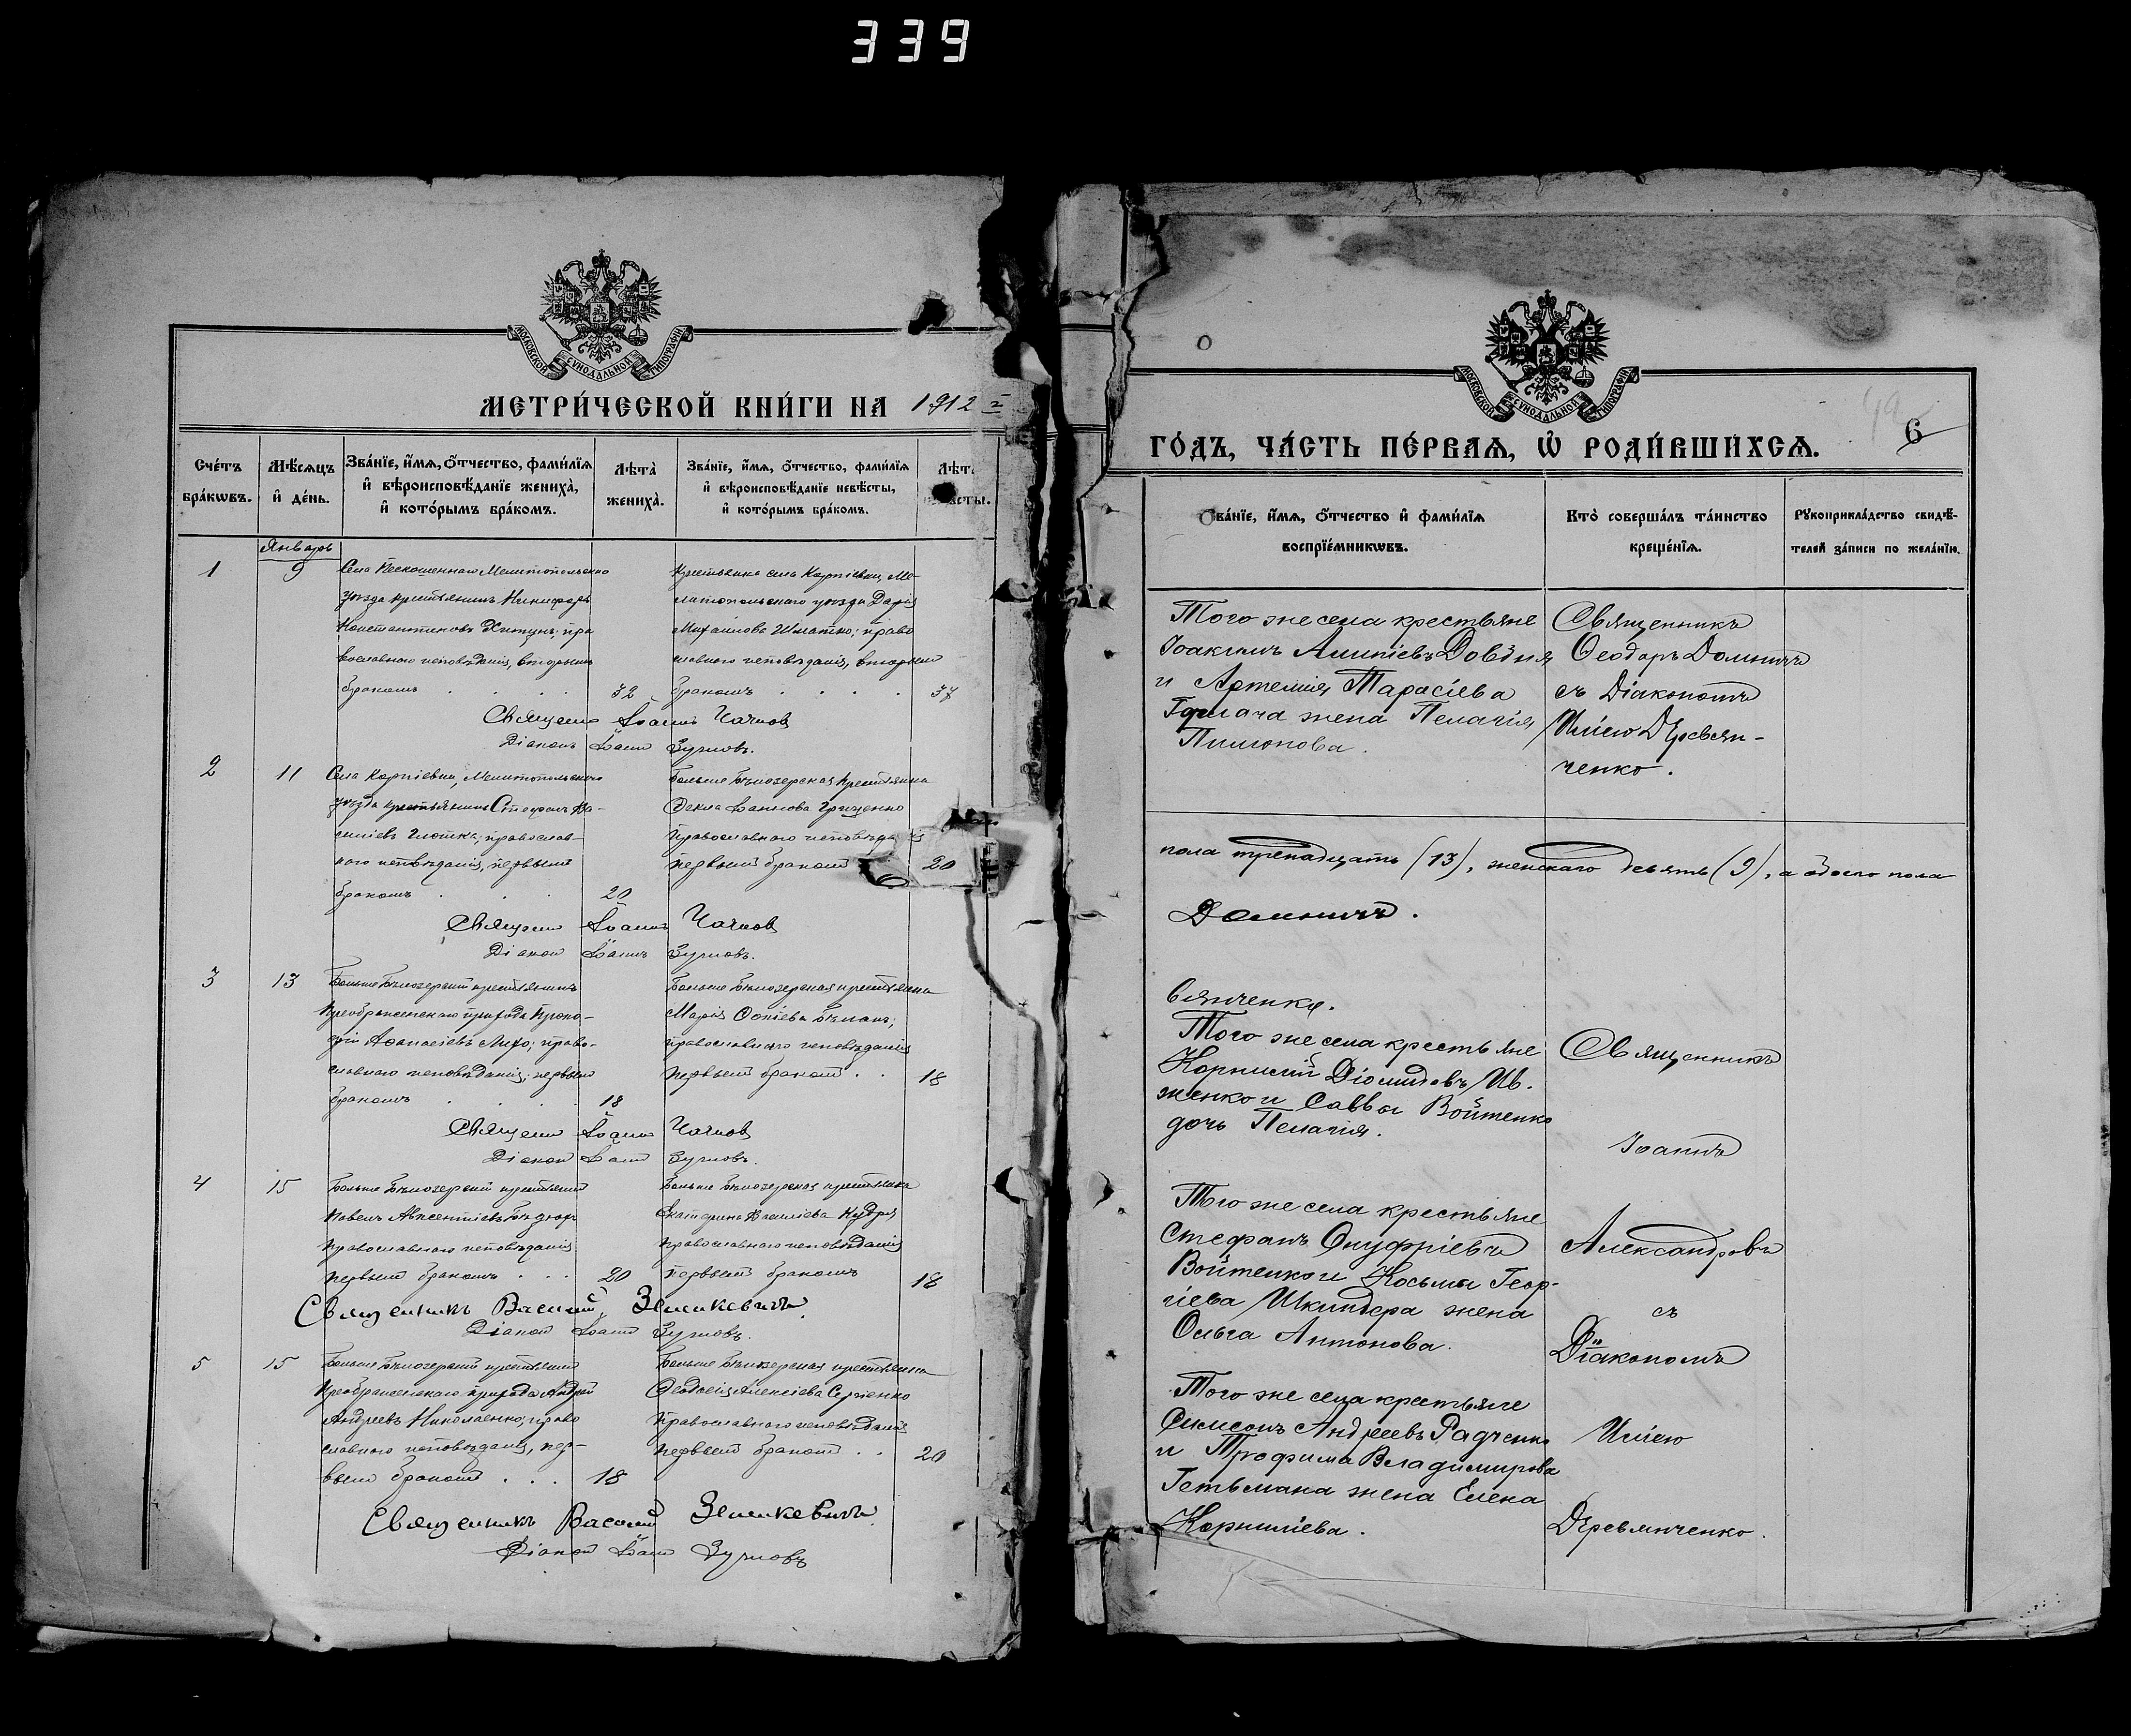 339
МОСКОВСКОЙ СУНОДАЛЬНОЙ ТИПОГРАФІИ
МЕТРИ́ЧЕСКОЙ КНИ́ГИ НА 1912 г
Сче́тъ бра́кωвъ.
Мѣ́сяцъ и҆ де́нь.
Зва́нїе, и҆́мя, ѻ҆́тчество, фами́лїя и҆ вѣроисповѣ́данїе жениха̀, и҆ кото́рымъ бра́комъ.
Лѣта̀ жениха̀.
Зва́нїе, и҆́мя, ѻ҆́тчество, фами́лїя и҆ вѣроисповѣ́данїе невѣ́сты, и҆ кото́рымъ бра́комъ.
Лѣта
Январь
1
9
Мелитопольскаго
уѣзда крестьянинъ Никифоръ
Константиновъ пра
вославнаго исповѣданія, вторымъ
бракомъ
32
Крестьянка села Карпіевки, Ме-
литопольскаго уѣзда Дарія
Михайлова право
славнаго исповѣданія, вторымъ
бракомъ
Іоаннъ Чачковъ
Діаконъ Іоаннъ
2
11
Села Карпіевки, Мелитопольскаго
уѣзда крестьянинъ Стефанъ Ва-
силіевъ православ-
наго исповѣданія, первымъ
бракомъ
20
Больше Бѣлозерская крестьянка
Ѳекла Іоаннова Гриценко
православнаго
первымъ бракомъ
20
Іоаннъ Чачковъ
Іоаннъ
3
13
Больше Бѣлозерскій крестьянинъ
Преображенскаго прихода Проко-
пій Аѳанасіевъ право-
славнаго исповѣданія; первымъ
бракомъ
18
Больше Бѣлозерская крестьянка
Марія
православнаго исповѣданія
первымъ бракомъ
18
Іоаннъ Чачковъ
Іоаннъ
4
15
Больше Бѣлозерскій крестьянинъ
Павелъ Авксентіевъ
православнаго исповѣданія
первымъ бракомъ
20
Больше Бѣлозерская крестьянка
Екатерина Василіева Кудря
православнаго исповѣданія
первымъ бракомъ
18
Священникъ Василій Зенкевичъ
Іоаннъ
5
15
Больше Бѣлозерскій крестьянинъ
Преображенскаго прихода Андрей
Андреевъ Николаенко; право
славнаго исповѣданія, пер-
вымъ бракомъ
18
Больше Бѣлозерская крестьянка
Ѳеодосія Алексіева Сергіенко
православнаго исповѣданія
первымъ бракомъ
20
Священникъ Василій Зенкевичъ
Іоаннъ
МОСКОВСКОЙ СУНОДАЛЬНОЙ ТИПОГРАФІИ
6
ГО́ДЪ, ЧА́СТЬ ПЕ́РВАЯ, Ѽ РОДИ́ВШИХСЯ.
Зва́нїе, и҆́мя, ѻ҆́тчество и҆ фами́лїя воспрїе́мникωвъ.
Кто̀ соверша́лъ та́инство креще́нїя.
Рꙋкоприкла́дство свидѣ́телей за́писи по жела́нїю.
Того же села крестьяне
Іоакимъ
и Артемія Тарасіева
жена Пелагія
Пимонова.
Священникъ
Ѳеодоръ Доминичъ
съ Діакономъ
Иліею Деревян-
ченко.
пола тринадцать (13), женскаго девять (9), а обоего пола
Доминичъ.
вянченко.
Того же села крестьяне
Корнилій Діомидовъ Ив-
женко и Саввы Войтенко
дочь Пелагія.
Священникъ
Іоаннъ
Того же села крестьяне
Стефанъ Онуфріевъ
Войтенко и Косьмы Геор-
гіева Шкиндера жена
Ольга Антонова.
Александровъ
съ
Діакономъ
Того же села крестьяне
Симеонъ Андреевъ Радченко
и Трофима Владимирова
Гетьмана жена Елена
Корниліева.
Иліею
Деревянченко.